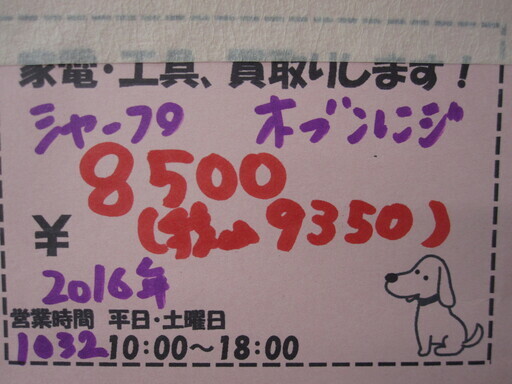 家電・工具、買取りします！
シャープ オーブンレンジ
8500
¥ (税込 9350)
2016年
営業時間 平日・土曜日
1032 10:00～18:00